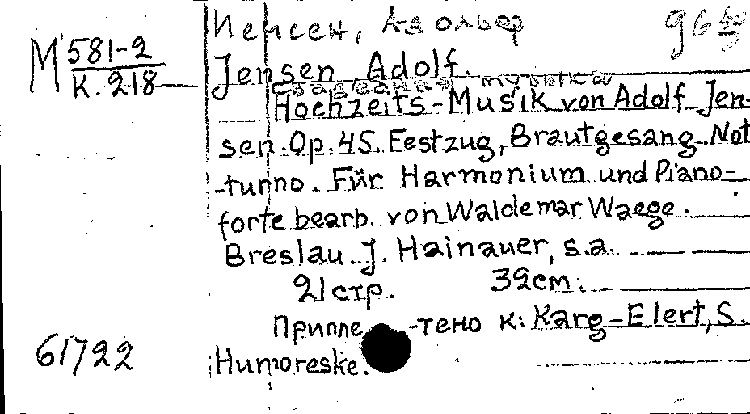 Иенсен, Адольф
96
М 581-2
К. 218
Jensen Adolf.
Свадебная музыка
Hochzeits-Musik von Adolf Jen-
sen. Op. 45. Festzug, Brautgesang. Not-
turno. Für Harmonium und Piano-
forte bearb. von Waldemar Waege.
Breslau. J. Hainauer, s.a.
21 стр. 32 см.
Припле -тено к: Karg-Elert, S.
Humoreske.
61722